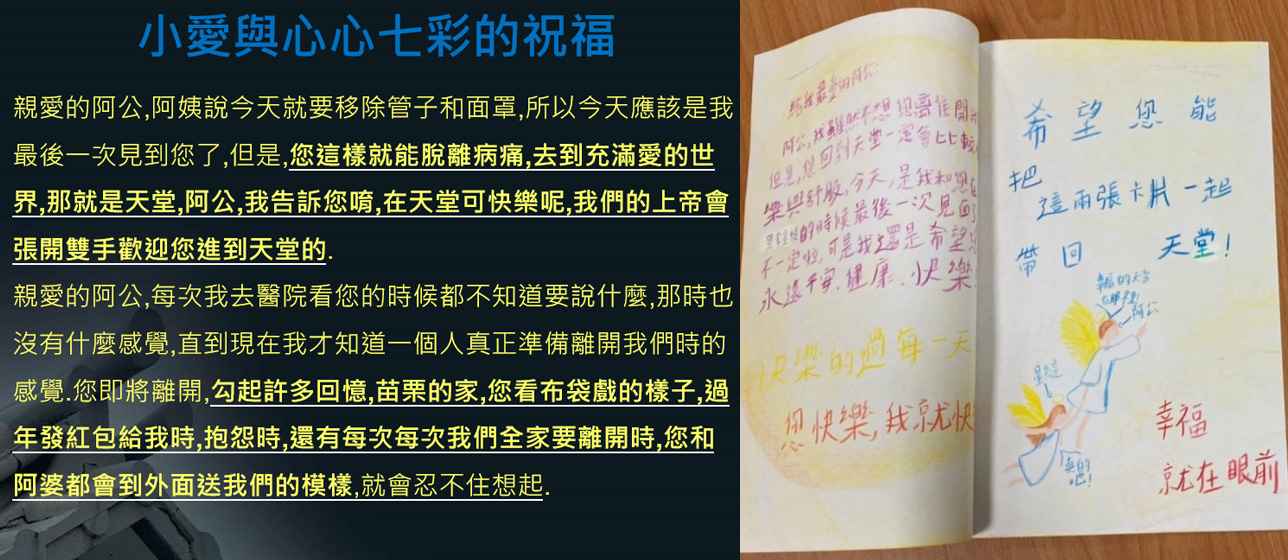 小愛與心心七彩的祝福
親愛的阿公,阿姨說今天就要移除管子和面罩,所以今天應該是我
最後一次見到您了,但是,您這樣就能脫離病痛,去到充滿愛的世
界,那就是天堂,阿公,我告訴您唷,在天堂可快樂呢,我們的上帝會
張開雙手歡迎您進到天堂的.
親愛的阿公,每次我去醫院看您的時候都不知道要說什麼,那時也
沒有什麼感覺,直到現在我才知道一個人真正準備離開我們時的
感覺.您即將離開,勾起許多回憶,苗栗的家,您看布袋戲的樣子,過
年發紅包給我時,抱怨時,還有每次每次我們全家要離開時,您和
阿婆都會到外面送我們的模樣,就會忍不住想起.
給我最愛的阿公:
阿公,我雖然不想您離開
但是,您回到天堂一定會比較
樂與舒服,今天,是我和您在
的時候最後一次見面了
不一定啦,可是我還是希望您
永遠平安、健康、快樂
快樂的過每一天
您快樂,我就快
希望您能
把
這兩張卡片一起
帶回 天堂!
幸福的天堂
在那裡!
阿公
真的
吧!
幸福
就在眼前